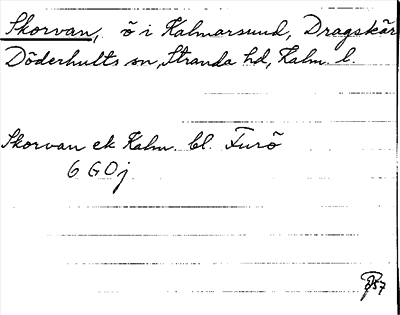 Skorvan, ö i Kalmarsund, Dragskär
Döderhults sn, Stranda hd, Kalm. l.
Skorvan ek Kalm. bl. Furö
6 G0j